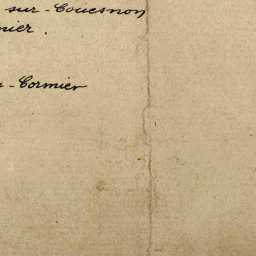 sur-Couesnon
mier.
-Cormier